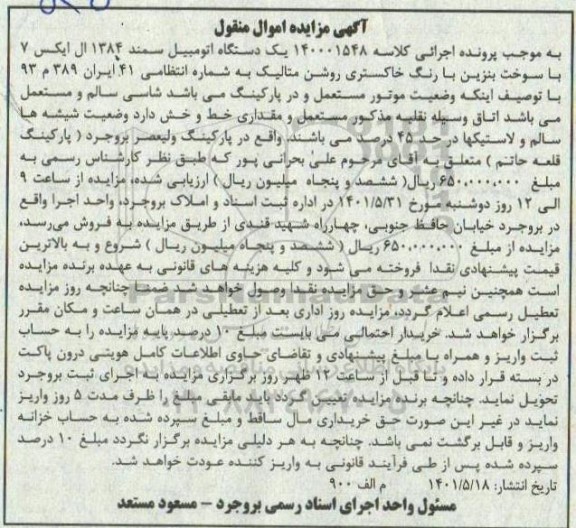 آگهی مزایده اموال منقول
به موجب پرونده اجرائی کلاسه ۱۴۰۰۰۱۵۴۸ یک دستگاه اتومبیل سمند ۱۳۸۴ ال ایکس ۷
با سوخت بنزین با رنگ خاکستری روشن متالیک به شماره انتظامی ۴۱ ایران ۳۸۹ م ۹۳
با توصیف اینکه وضعیت موتور مستعمل و در پارکینگ می باشد شاسی سالم و مستعمل
می باشد اتاق وسیله نقلیه مذکور مستعمل و مقداری خط و خش دارد وضعیت شیشه ها
سالم و لاستیکها در حد ۴۵ درصد می باشند واقع در پارکینگ ولیعصر بروجرد ( پارکینگ
قلعه حاتم ) متعلق به آقای مرحوم علی بحرانی پور که طبق نظر کارشناس رسمی به
مبلغ ۶۵۰,۰۰۰,۰۰۰ ریال( ششصد و پنجاه میلیون ریال ) ارزیابی شده مزایده از ساعت ۹
الی ۱۲ روز دوشنبه مورخ ۱۴۰۱/۵/۳۱ در اداره ثبت اسناد و املاک بروجرد، واحد اجرا واقع
در بروجرد خیابان حافظ جنوبی، چهارراه شهید قندی از طریق مزایده به فروش می‌رسد،
مزایده از مبلغ ۶۵۰,۰۰۰,۰۰۰ ریال ( ششصد و پنجاه میلیون ریال ) شروع و به بالاترین
قیمت پیشنهادی نقدا فروخته می شود و کلیه هزینه های قانونی به عهده برنده مزایده
است همچنین نیم عشر و حق مزایده نقدا وصول خواهد شد ضمنا چنانچه روز مزایده
تعطیل رسمی اعلام گردد، مزایده روز اداری بعد از تعطیلی در همان ساعت و مکان مقرر
برگزار خواهد شد. خریدار احتمالی می بایست مبلغ ۱۰ درصد پایه مزایده را به حساب
ثبت واریز و همراه با مبلغ پیشنهادی و تقاضای حاوی اطلاعات کامل هویتی درون پاکت
در بسته قرار داده و تا قبل از ساعت ۱۲ ظهر روز برگزاری مزایده به اجرای ثبت بروجرد
تحویل نماید. چنانچه برنده مزایده تعیین گردد باید مابقی مبلغ را ظرف مدت ۵ روز واریز
نماید در غیر این صورت حق خریداری مال ساقط و مبلغ سپرده شده به حساب خزانه
واریز و قابل برگشت نمی باشد. چنانچه به هر دلیلی مزایده برگزار نگردد مبلغ ۱۰ درصد
سپرده شده پس از طی فرآیند قانونی به واریز کننده عودت خواهد شد.
تاریخ انتشار: ۱۴۰۱/۵/۱۸ م الف ۹۰۰
مسئول واحد اجرای اسناد رسمی بروجرد – مسعود مستعد
ParsNamadData